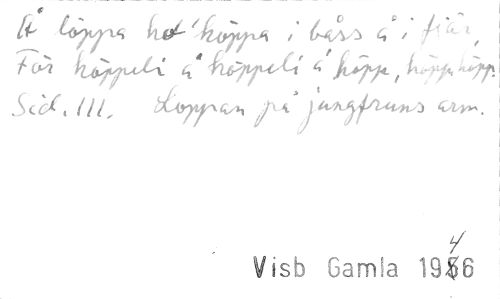 Å löppa hot' höppa i båss å i fjär,
För höppeli å höppeli å höpp, höpp, höpp.
Sid. 111. Loppan på jungfruns arm.
Visb Gamla 1946